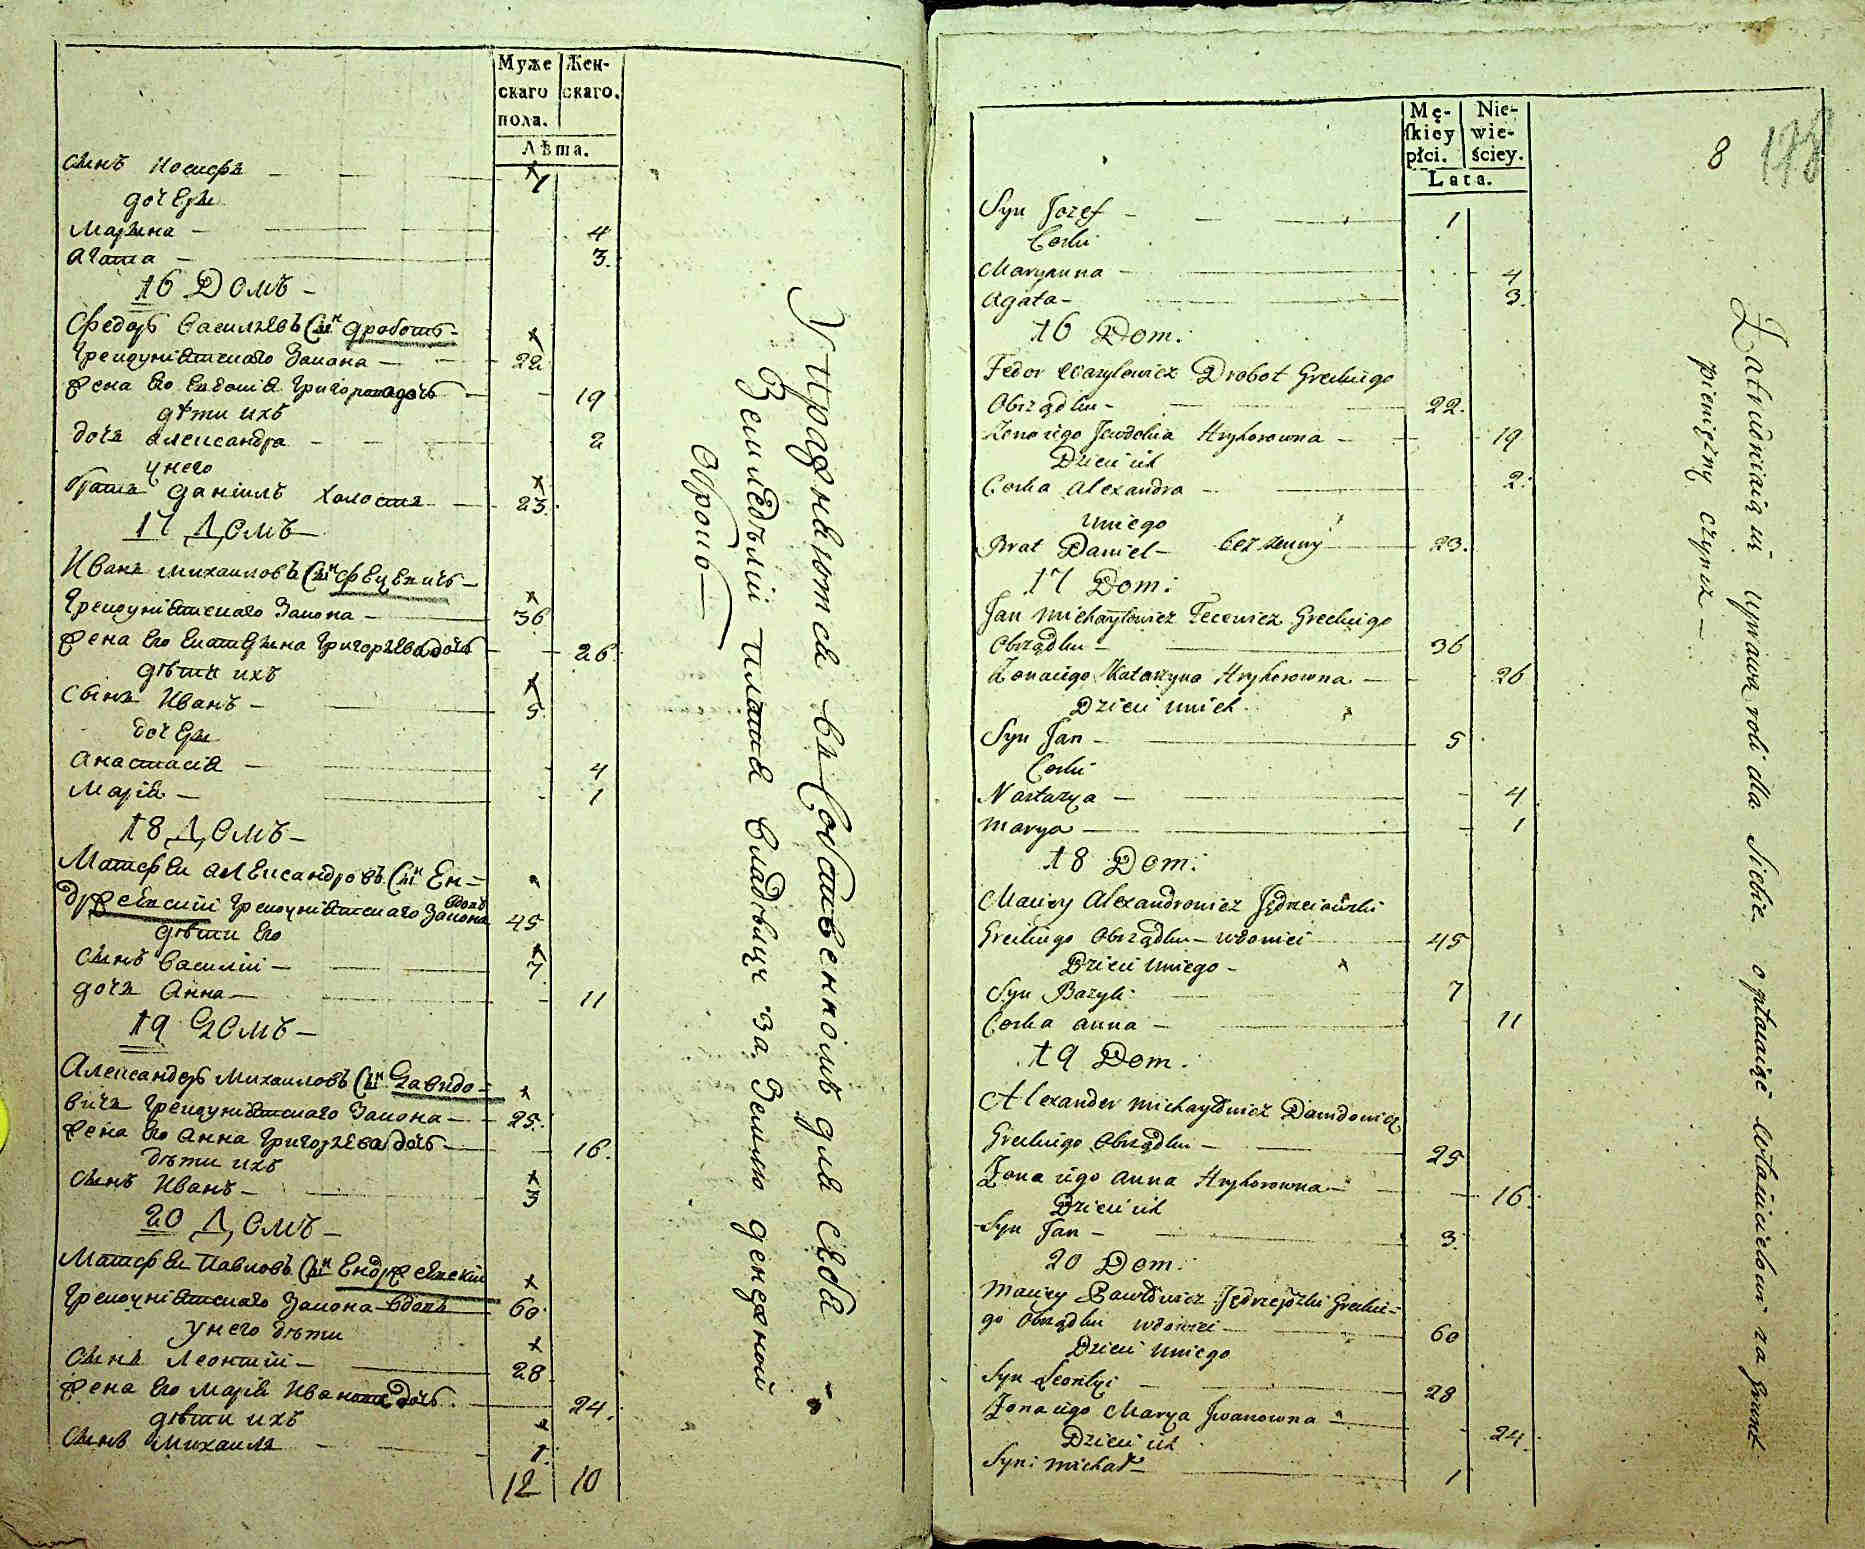 Муже
скаго
пола.
Жен-
скаго.
Лѣта.
сынъ Иосифъ — 1
дочери
Марына — 4
Агата — 3.
16 Домъ —
Федоръ Васильевъ Сынъ Дроботъ —
Грекоуніятскаго Закона — 22
Жена его Евдокія Григорова дочь — 19
дѣти ихъ
дочь Александра — 2
у него
братъ Даніилъ холостъ — 23.
17 Домъ —
Иванъ Михаиловъ Сынъ Фецевичъ —
Грекоуніятскаго Закона — 36
Жена его Екатерына Григорьева дочь — 26.
дѣти ихъ
Сынъ Иванъ — 5
дочери
Анастасія — 4
Марія — 1
18 Домъ —
Матфеи Александровъ Сынъ Ен-
држеевскій Грекоуніятскаго Закона вдовъ 45
дѣти его
Сынъ Василій — 7
дочь Анна — 11
19 Домъ —
Александеръ Михаиловъ Сынъ Давидо-
вичъ Грекоуніятскаго Закона — 25.
Жена его Анна Григорьева дочь — 16.
дѣти ихъ
Сынъ Иванъ — 3
20 Домъ —
Матфеи Павловъ Сынъ Ендржеевскій
Грекоуніятскаго Закона вдовъ 60
у него дѣти
Сынъ Леонтій — 28
Жена его Марія Иванова дочь. 24.
дѣти ихъ
Сынъ Михаилъ — 1.
12 10
Упражняются въ Собственномъ для себя
Земледѣліи платя владѣльцу за Землю денежной
Оброкъ —
8 198
Mę-
skiey
płci.
Nie-
wie-
ściey.
Lata.
Syn Jozef — 1
Corki
Maryanna — 4
Agata — 3.
16 Dom.
Fedor Wasylowicz Drobot Greckiego
Obrządku — 22.
Zona iego Jewdokia Hryhorowna — 19
Dzieci ich
Corka Alexandra — 2.
u niego
Brat Daniel — bez zenny — 23.
17 Dom.
Jan Michayłowicz Fecewicz Greckiego
Obrządku — 36
Zona iego Katarzyna Hryhorowna — 26
Dzieci u nich
Syn Jan — 5
Corki
Nastazya — 4
Marya — 1
18 Dom.
Maciey Alexandrowicz Jędrzeiowski
Greckiego Obrządku — wdowiec 45
Dzieci u niego —
Syn Bazyli — 7
Corka Anna — 11
19 Dom.
Alexander Michayłowicz Dawidowicz
Greckiego Obrządku — 25
Zona iego Anna Hryhorowna — 16.
Dzieci ich
Syn Jan — 3.
20 Dom.
Maciey Pawłowicz Jędrzejowski Greckie-
go Obrządku wdowiec — 60
Dzieci u niego
Syn Leontyi — 28
Zona iego Marya Jwanowna — 24.
Dzieci ich
Syn Michał — 1
Zatrudniaią się uprawą roli dla siebie opłacaiąc właścicielowi za grunt
pieniężny czynsz —